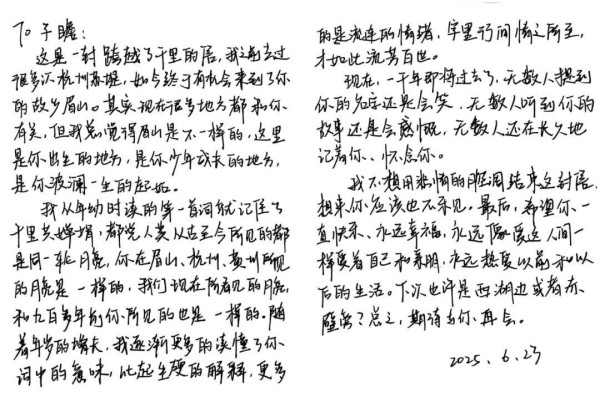 To 子瞻：
这是一封跨越了千里的信，我之前去过
很多次杭州苏堤，如今终于有机会来到了你
的故乡眉山。其实现在很多地方都和你
有关，但我总觉得眉山是不一样的，这里
是你出生的地方，是你少年成长的地方，
是你波澜一生的起始。
我从年幼时读的第一首词就记住了
千里共婵娟，都说人类从古至今所见的都
是同一轮月亮，你在眉山、杭州、黄州所见
的月亮是一样的，我们现在所看见的月亮
和九百多年前你所见的也是一样的。随
着年岁的增长，我逐渐更多的读懂了你
词中的意味，比起生硬的解释，更多
的是流连的情绪，字里行间情之所至，
才如此流芳百世。
现在，一千年即将过去了，无数人提到
你的名字还是会笑，无数人听到你的
故事还是会感慨，无数人还在长久地
记着你、怀念你。
我不想用悲情的腔调结束这封信，
想来你应该也不乐见。最后，希望你一
直快乐、永远幸福，永远像写这人间一
样爱着自己和黎明，永远热爱以前和以
后的生活。下次也许是西湖边或者赤
壁旁？总之，期待与你再会。
2025.6.23